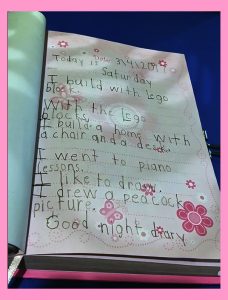 Today is 3/4/2019
Saturday
I build with Lego
block.
With the Lego
blocks,
I build a home with
a chair and a desk.
I went to piano
lessons.
I like to draw.
I drew a peacock
picture.
Good night diary